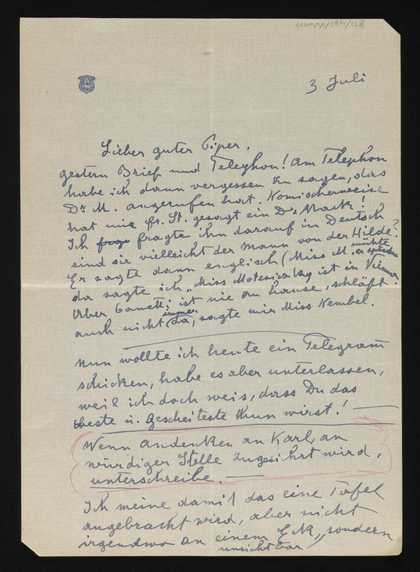 3 Juli
Lieber guter Piper.
gestern Brief und Telephon! Am Telephon
habe ich dann vergessen zu sagen, dass
Dr M. angerufen hat. Komischerweise
hat mir Fr. St. gesagt ein Dr
Ich fragte ihn darauf in Deutsch
sind sie vielleicht der Mann von der Hilde?
Er sagte dann englisch (Miss M.
da sagte ich „Miss Motesiczky ist in Vienna.
Über Canetti ist nie zu hause, schläft
auch nicht immer da, sagte mir Miss Kembel.
Nun wollte ich heute ein Telegram
schicken, habe es aber unterlassen,
weil ich doch weis, dass Du das
beste u. Gescheiteste thun wirst!
Wenn andenken an Karl, an
würdiger Stelle zugesichert wird,
unterschreibe.
Ich meine damit das eine Tafel
angebracht wird, aber nicht
irgendwo an einem Eck, sondern
unsichtbar